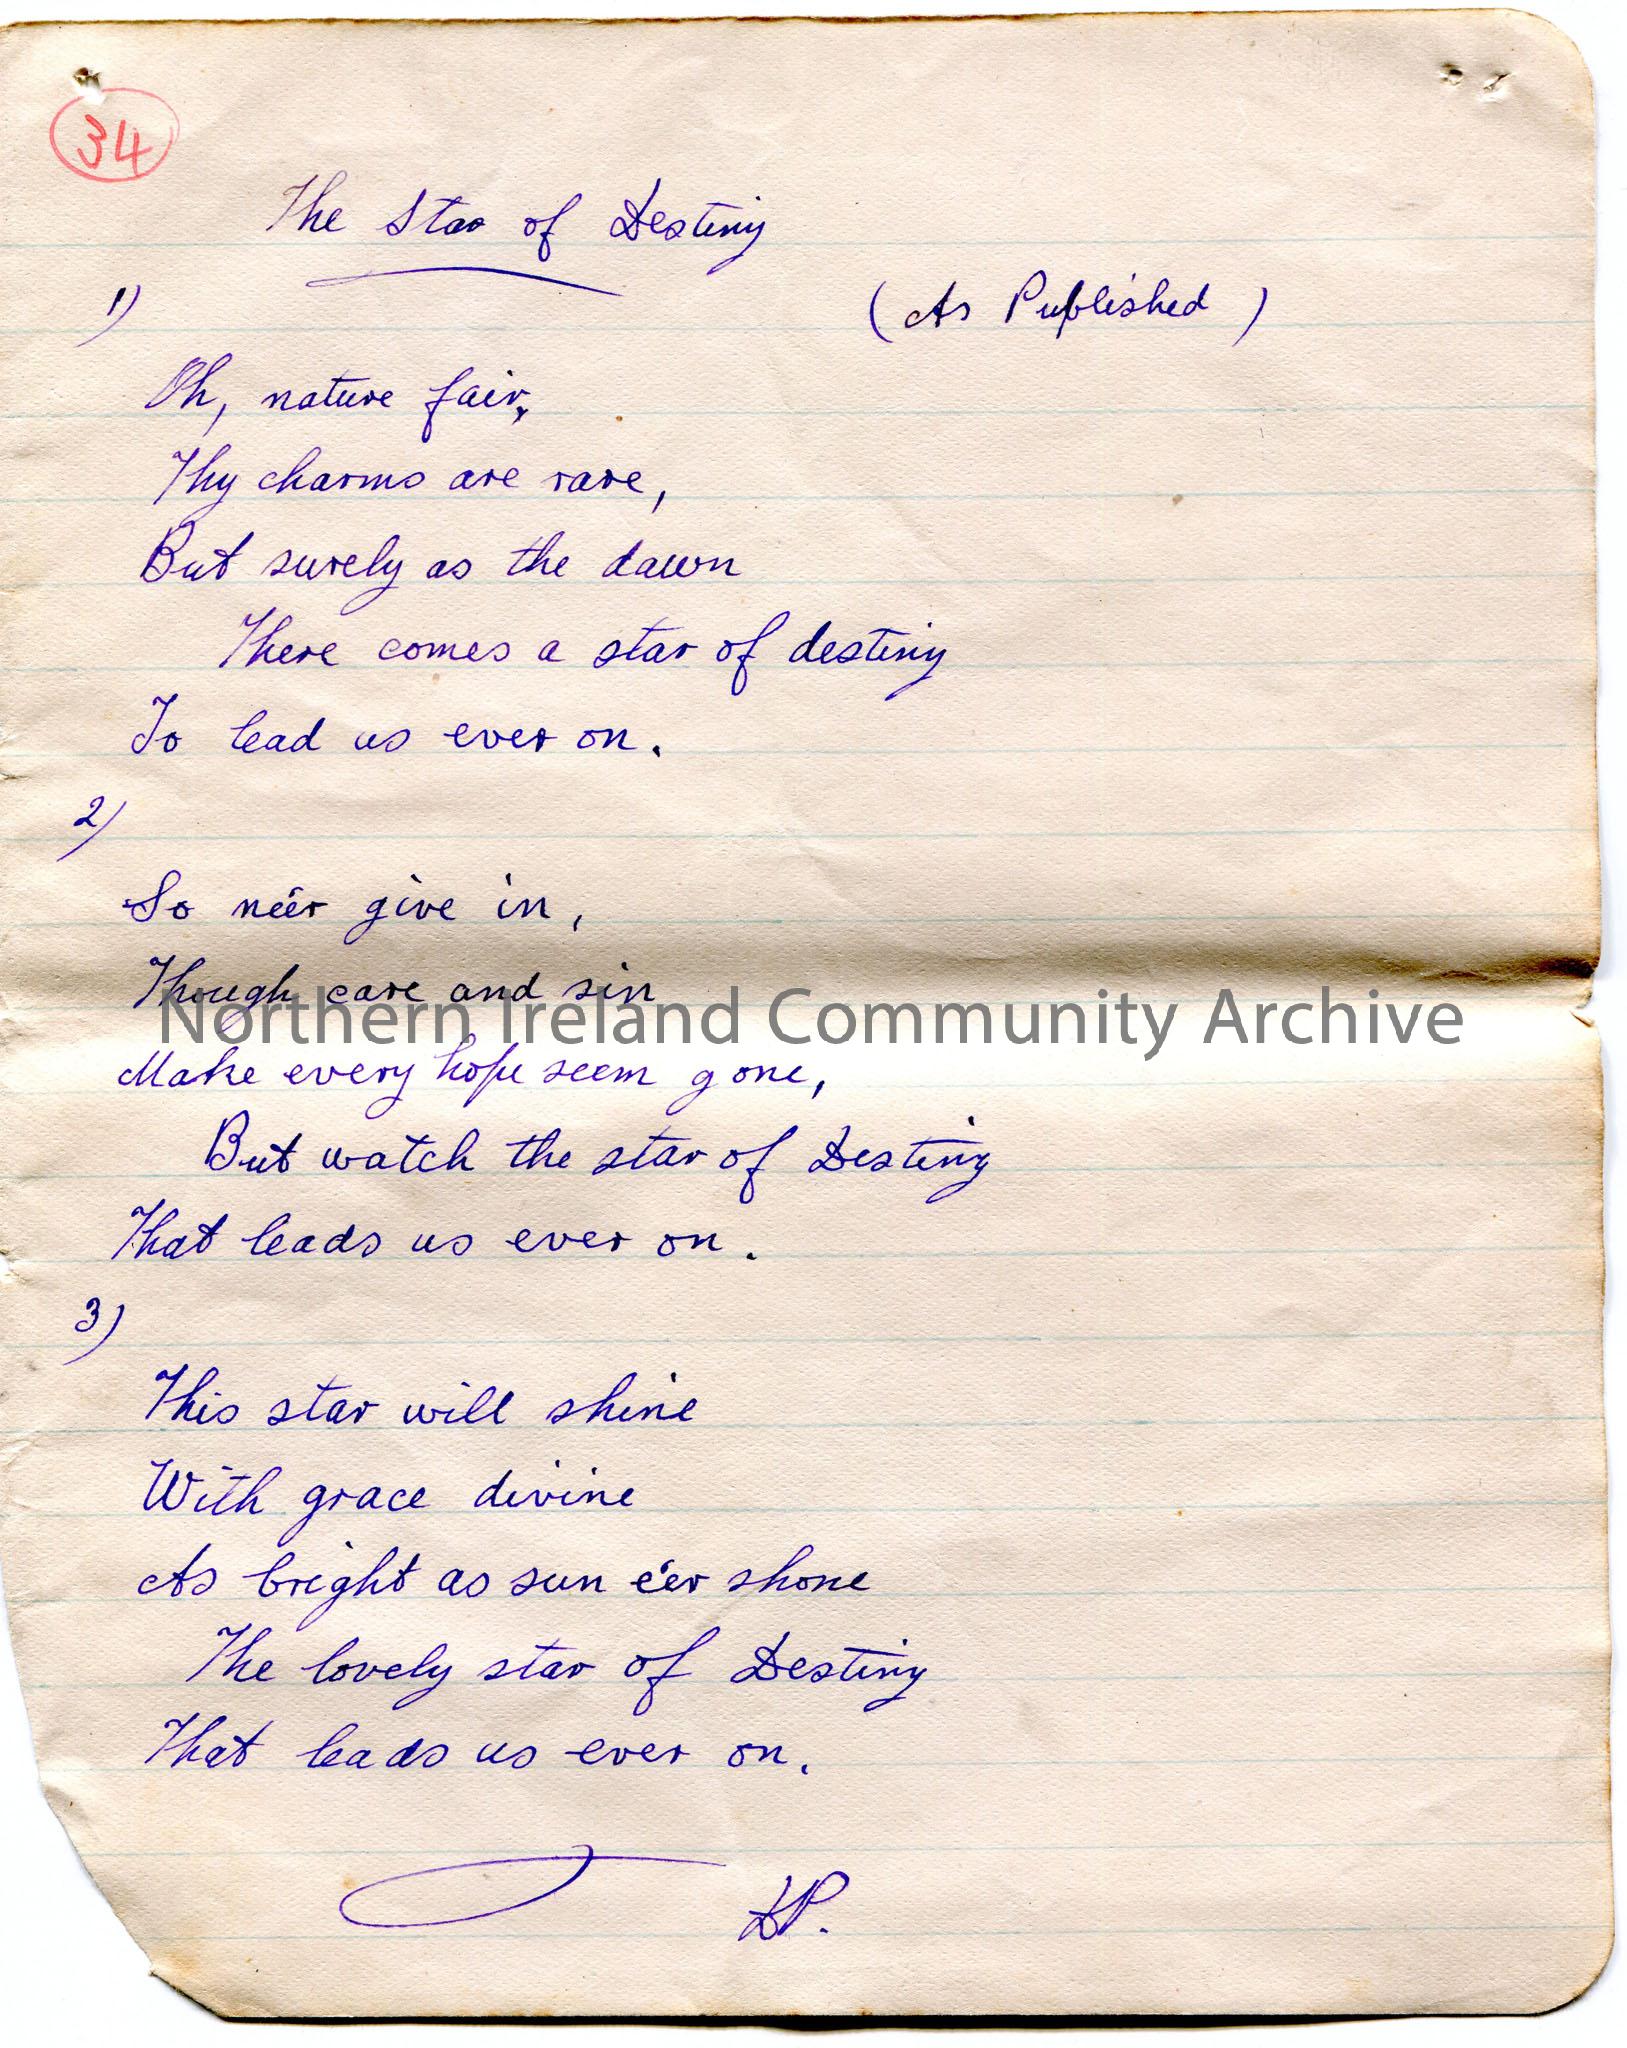 34
The Star of Destiny
1)
(As Published)
Oh, nature fair,
Thy charms are rare,
But surely as the dawn
There comes a star of destiny
To lead us ever on.
2)
So ne'er give in,
Though care and sin
Northern Ireland Community Archive
Make every hope seem gone,
But watch the star of Destiny
That leads us ever on.
3)
This star will shine
With grace divine
As bright as sun e'er shone
The lovely star of Destiny
That leads us ever on.
DP.